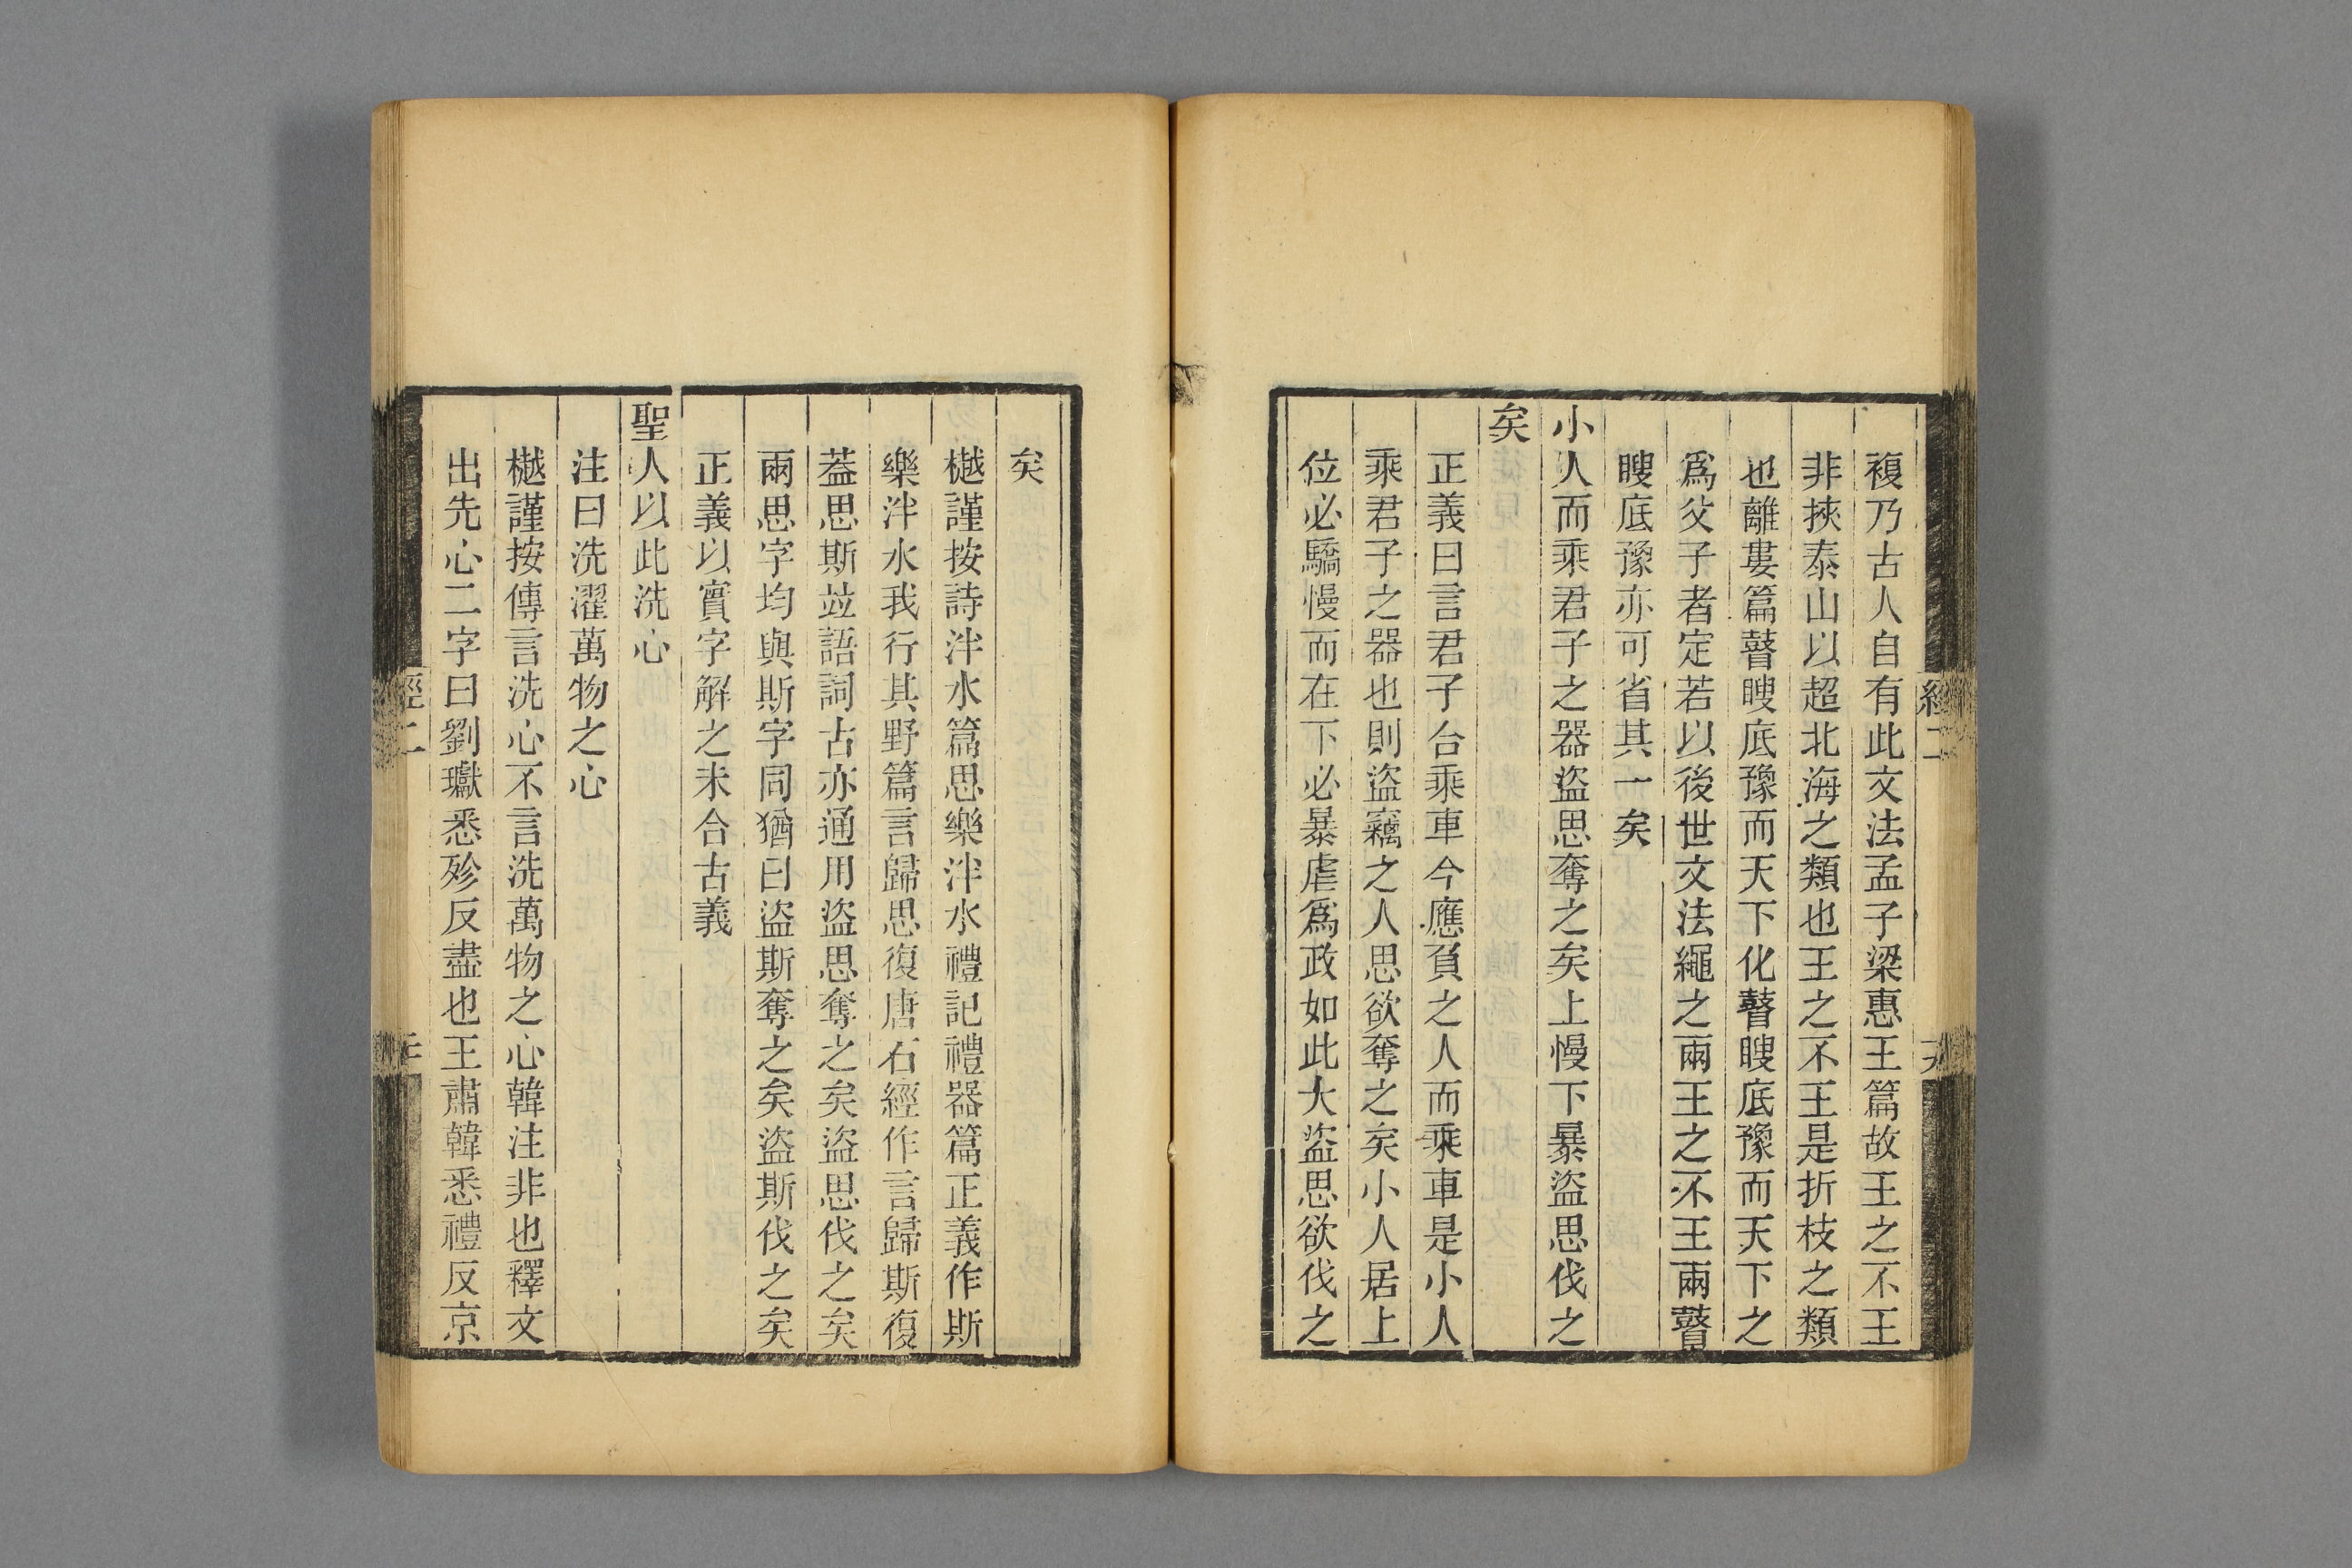 複乃古人自有此文法孟子梁惠王篇故王之不王
非挾泰山以超北海之類也王之不王是折枝之類
也離婁篇瞽瞍底豫而天下化瞽瞍底豫而天下之
爲父子者定若以後世文法繩之兩王之不王兩瞽
瞍底豫亦可省其一矣
小人而乘君子之器盜思奪之矣上慢下暴盜思伐之
矣
正義曰言君子合乘車今應負之人而乘車是小人
乘君子之器也則盜竊之人思欲奪之矣小人居上
位必驕慢而在下必暴虐爲政如此大盜思欲伐之
矣
樾謹按詩泮水篇思樂泮水禮記禮器篇正義作斯
樂泮水我行其野篇言歸思復唐石經作言歸斯復
葢思斯竝語詞古亦通用盜思奪之矣盜思伐之矣
兩思字均與斯字同猶曰盜斯奪之矣盜斯伐之矣
正義以實字解之未合古義
聖人以此洗心
注曰洗濯萬物之心
樾謹按傳言洗心不言洗萬物之心韓注非也釋文
出先心二字曰劉瓛悉殄反盡也王肅韓悉禮反京
經二